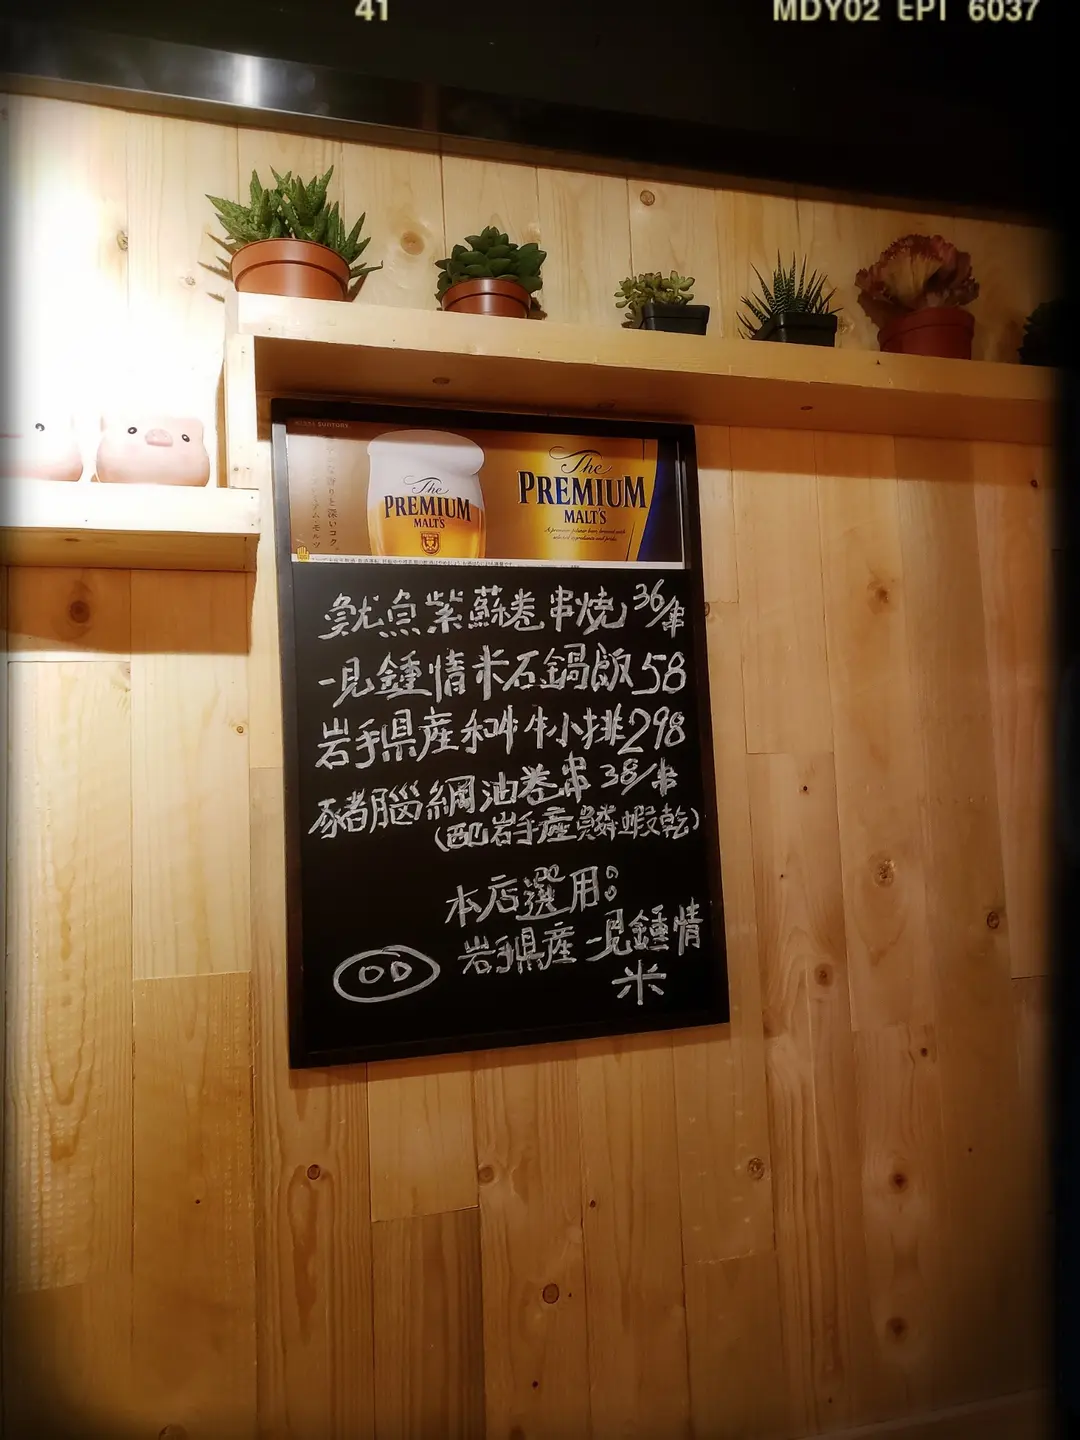 41
MDY02 EPI 6037
SUNTORY
The
PREMIUM
MALT'S
The
PREMIUM
MALT'S
魷魚紫蘇卷串燒 36/串
一見鍾情米石鍋飯 58
岩手県産和牛牛小排 298
豬腦網油卷串 38/串
(配岩手産鱗蝦乾)
本店選用:
岩手県産一見鍾情
米